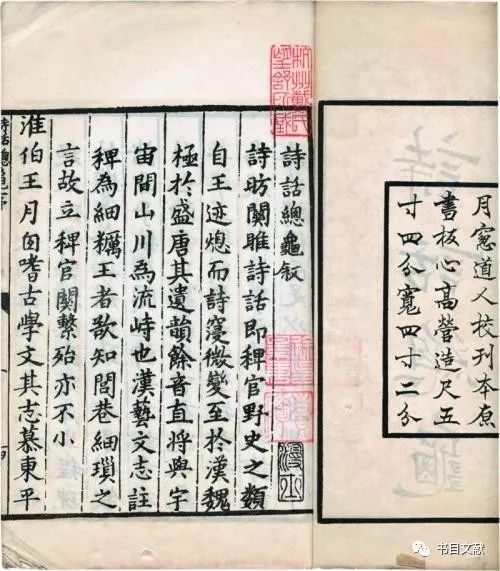 月窓道人校刊本原
書板心高營造尺五
寸四分寬四寸二分
杭州戴氏
望舒所藏
詩話總龜叙
詩昉關雎詩話即稗官野史之類
自王迹熄而詩寖微變至於漢魏
極於盛唐其遺韻餘音直將與宇
宙間山川為流峙也漢藝文志註
稗為細糲王者欲知閭巷細瑣之
言故立稗官關繫殆亦不小
淮伯王月囱嗜古學文其志慕東平
詩話總龜序
书目文献